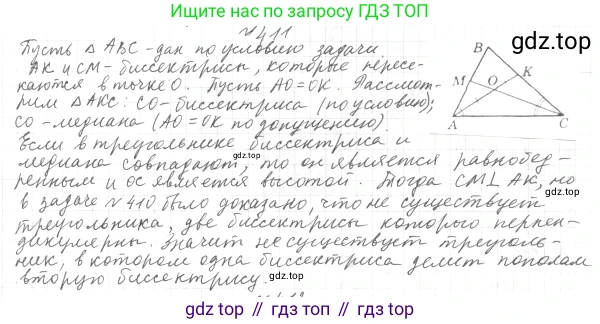 Ищите нас по запросу ГДЗ ТОП
№411
Пусть △ABC-дан по условию задачи.
AK и CM- биссектрисы, которые пересе-
каются в точке O. Пусть AO=OK. Рассмот-
рим △AKC: CO-биссектриса (по условию);
CO-медиана (AO=OK по допущению).
Если в треугольнике биссектриса и
медиана совпадают, то он является равнобед-
ренным и ос является высотой. Тогда CM⊥AK, но
в задаче №410 было доказано, что не существует
треугольника, две биссектрисы которого перпен-
дикулярны. Значит не существует треуголь-
ник, в котором одна биссектриса делит пополам
вторую биссектрису.
B
M
O
K
A
C
gdz.top
gdz.top
gdz.top
gdz.top
gdz.top
gdz.top / gdz.top / gdz.top